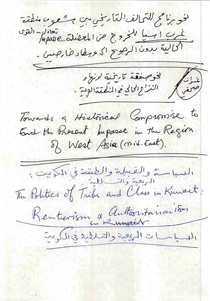 نحو برنامج للتحالف التاريخي بين شعوب منطقة
غرب آسيا للخروج من المعضلة Impasse
الحالية بدون الرجوع الى وسطاء خارجيين.
نحو صفقة تاريخية لإنهاء
النزاع الحالي في المنطقة
Towards a Historical Compromise to
End the Present Impasse in the Region
of West Asia (Mid. East).
السياسة والقبيلة والطبقة في الكويت:
الريعية والتسلطية
The Politics of Tribe and Class in Kuwait:
Renterism & Authoritarianism
in Kuwait
السياسات الريعية والتسلطية في الكويت